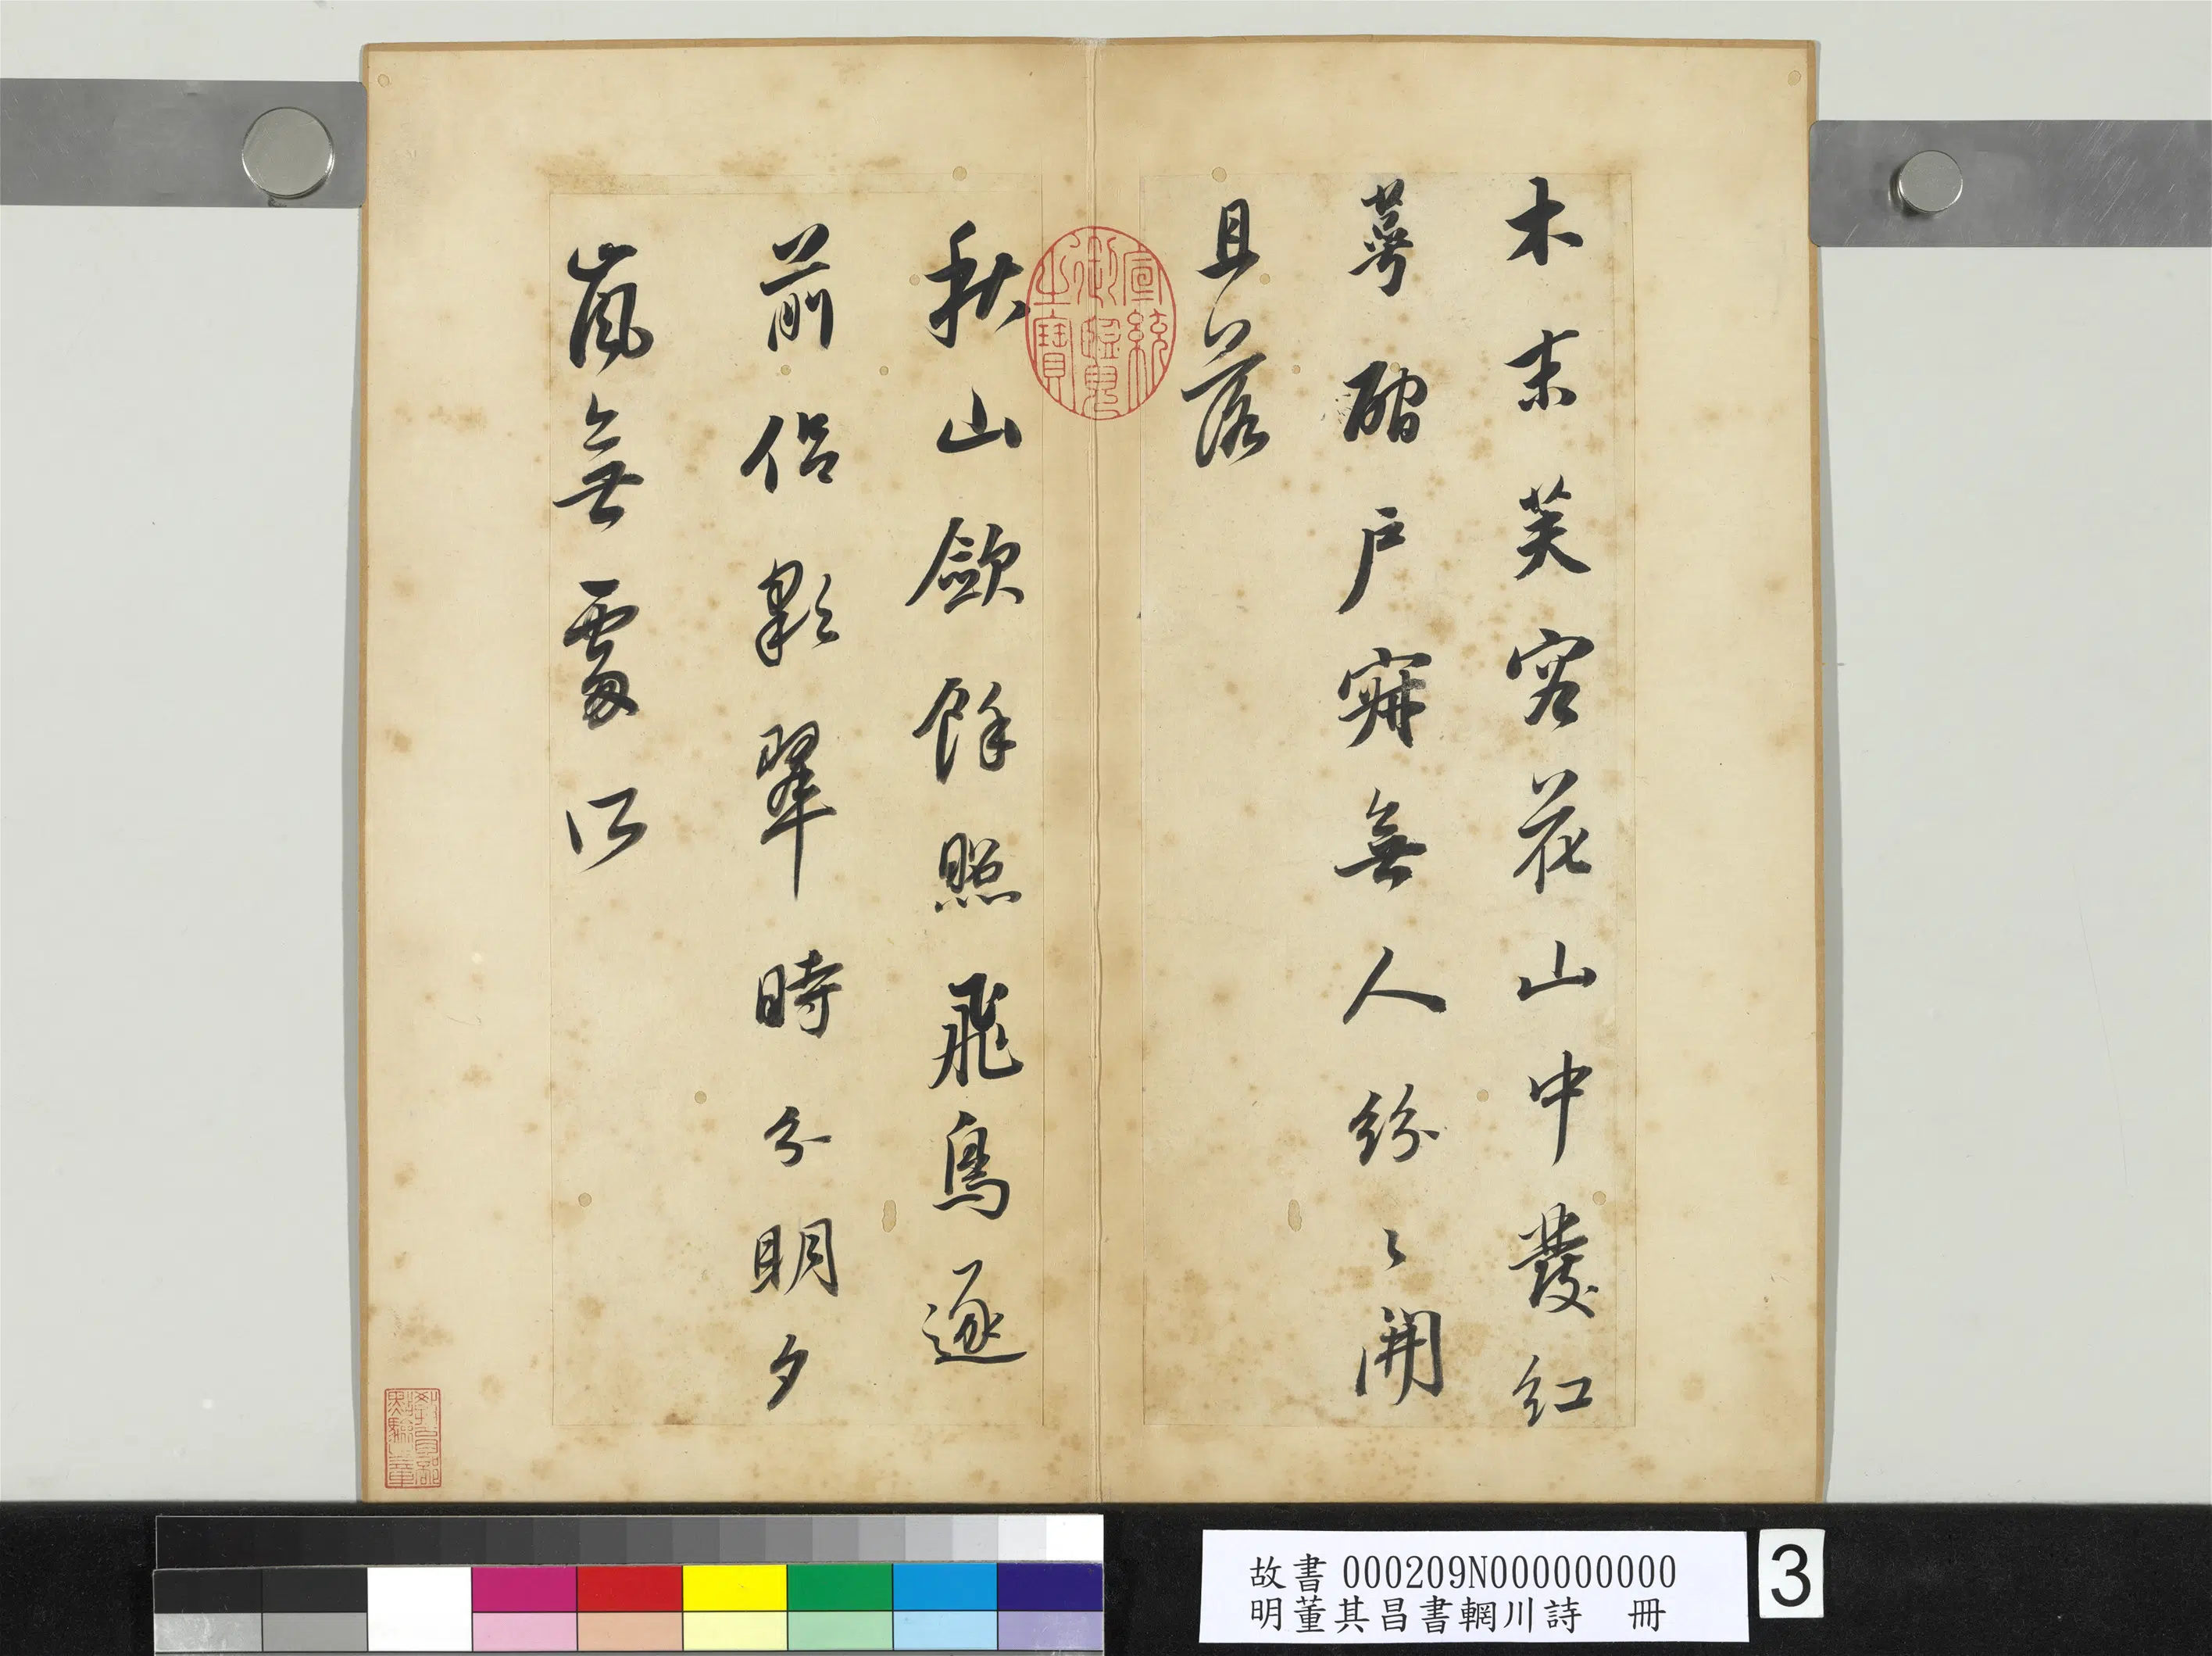 木末芙容花山中發紅
萼磵戶寂無人紛〻開
且落
秋山斂餘照飛鳥逐
前侶彩翠時分明夕
嵐無處所
宣統
御覽
之寶
教育部
點驗之章
故書 000209N000000000
明董其昌書輞川詩 冊
3